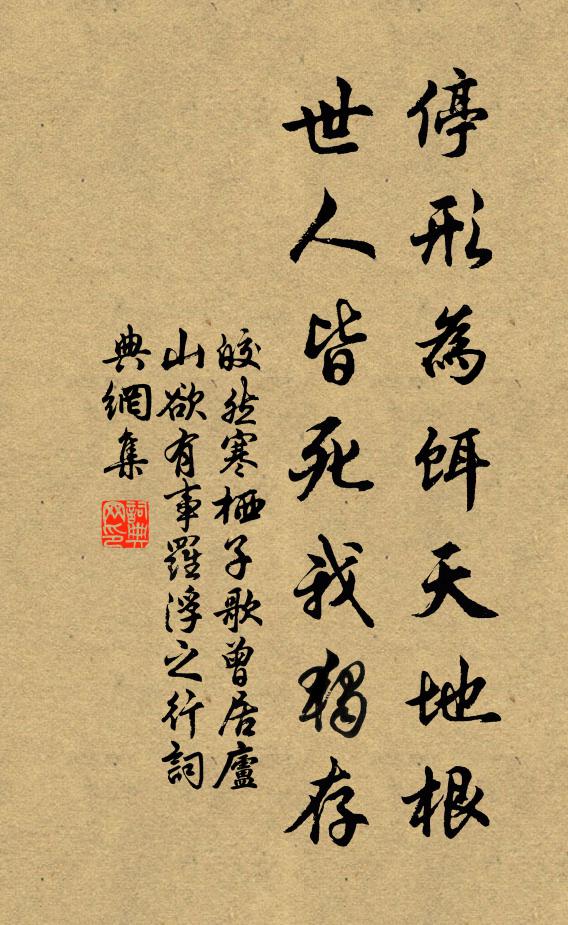 停形為餌天地根
世人皆死我獨存
皎然寒栖子歌曾居廬
山欲有事羅浮之行詞
典網集
詞典
网印